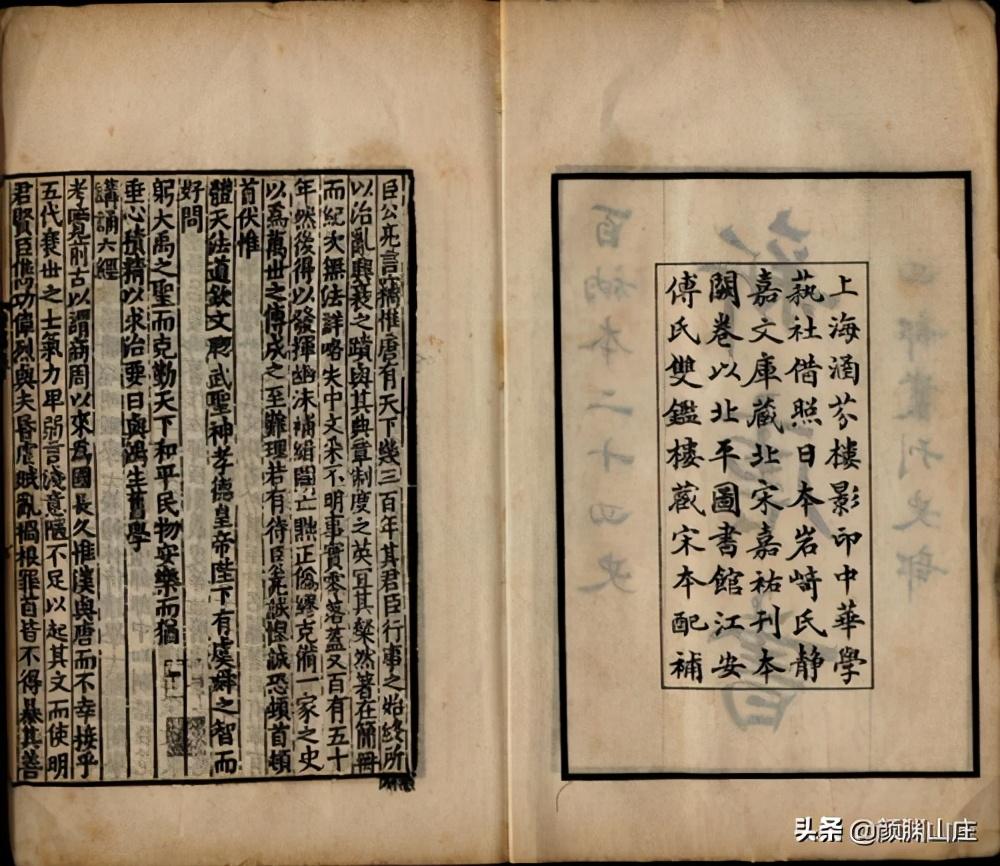 上海涵芬樓影印中華學
蓺社借照日本岩崎氏静
嘉文庫藏北宋嘉祐刊本
闕卷以北平圖書館江安
傅氏雙鑑樓藏宋本配補
四部叢刊史部
新唐書
百衲本二十四史
臣公亮言竊惟唐有天下幾三百年其君臣行事之始終所
以治亂興衰之蹟與其典章制度之英宜其粲然著在簡冊
而紀次無法詳略失中文采不明事實零落蓋又百有五十
年然後得以發揮幽沬補緝闕亡黜正偽繆克備一家之史
以為萬世之傳成之至難理若有待臣公亮誠惶誠恐頓首頓
首伏惟
體天法道欽文聰武聖神孝德皇帝陛下有虞舜之智而
好問
躬大禹之聖而克勤天下和平民物安樂而猶
垂心積精以求治要日與鴻生舊學
講誦六經
考覽前古以謂商周以來為國長久惟漢與唐而不幸接乎
五代衰世之士氣力卑弱言淺意陋不足以起其文而使明
君賢臣儁功偉烈與夫昏虐賊亂禍根罪首皆不得暴其善
头条 @颜渊山庄